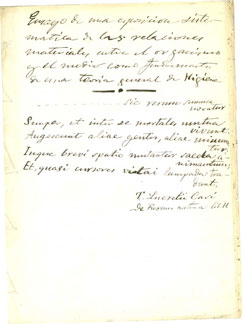 Ensayo de una exposicion siste-
mática de las relaciones
materiales entre el organismo
y el medio como fundamento
de una teoría general de Higiene
Sic rerum summa
novatur
Semper, et inter se mortales mutua
vivunt.
Augescunt aliae gentes, aliae minuun
tur,
Inque brevi spatio mutantur saecla a-
nimantum,
Et, quasi cursores vitai lampada tra-
dunt.
T. Lucretii Cari
De Rerum natura